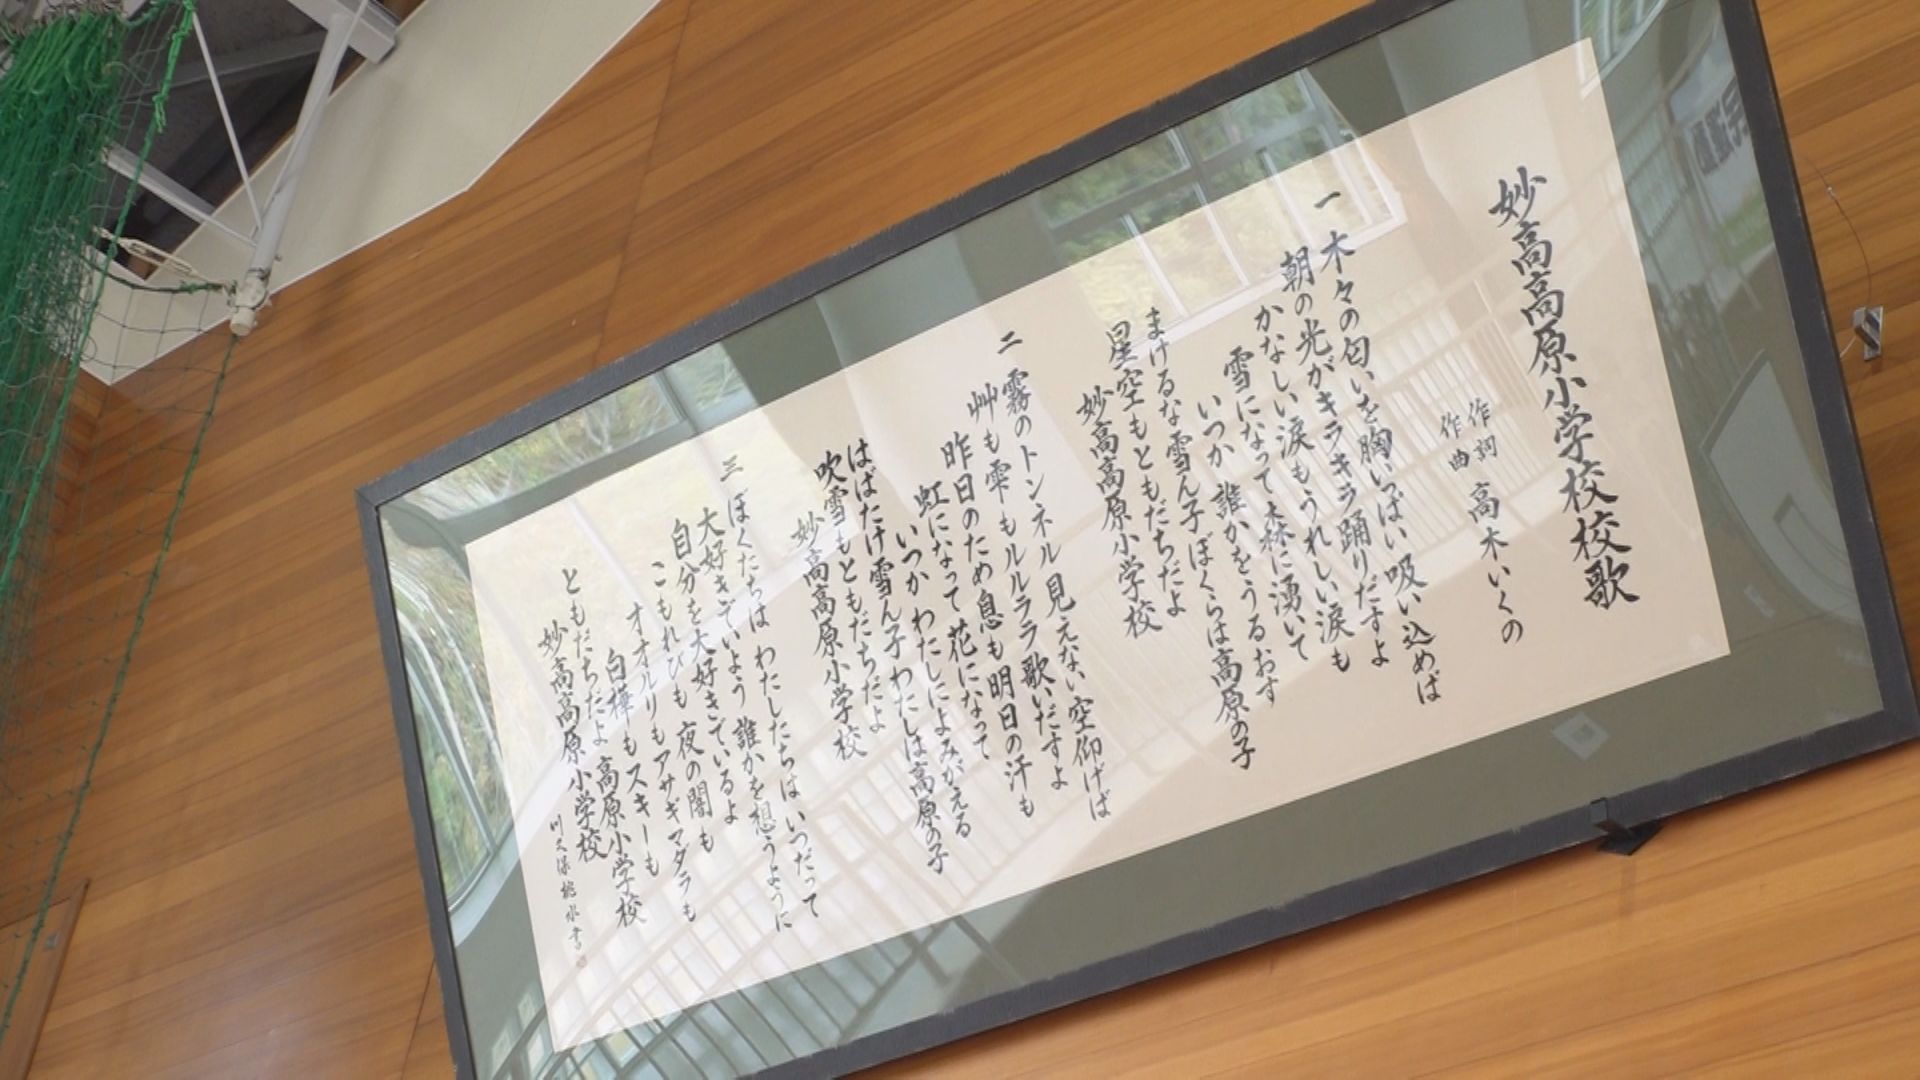 妙高高原小学校校歌
作詞
作曲 高木いくの
一 木々の匂いを胸いっぱい吸い込めば
朝の光がキラキラ踊りだすよ
かなしい涙もうれしい涙も
雪になって森に湧いて
いつか 誰かをうるおす
まけるな雪ん子ぼくらは高原の子
星空もともだちだよ
妙高高原小学校
二 霧のトンネル見えない空仰げば
艸も雫もルルララ歌いだすよ
昨日のため息も明日の汗も
虹になって花になって
いつか わたしによみがえる
はばたけ雪ん子わたしは高原の子
吹雪もともだちだよ
妙高高原小学校
三 ぼくたちは わたしたちは いつだって
大好きでいよう 誰かを想うように
自分を大好きでいるよ
こもれびも 夜の闇も
オオルリもアサギマダラも
白樺もスキーも
ともだちだよ 高原小学校
妙高高原小学校
川久保桃水書